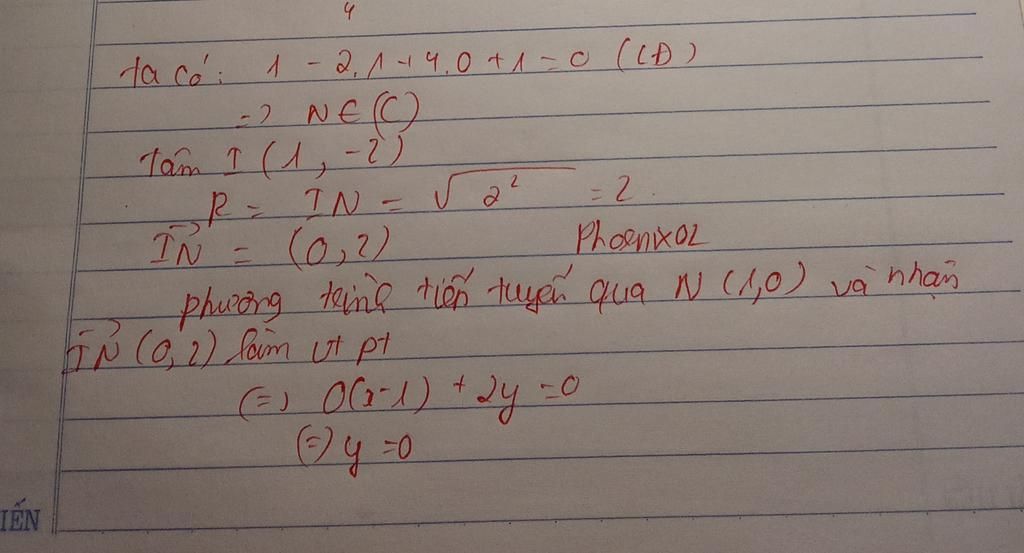 4
ta có: 1 - 2.1 + 4.0 + 1 = 0 (LĐ)
=> N ∈ (C)
tâm I (1, -2)
R = IN = √2² = 2.
IN→ = (0, 2) Phoenix02
phương trình tiến tuyến qua N (1,0) và nhận
IN→ (0, 2) làm vt pt
(=) 0(x-1) + 2y = 0
(=) y = 0
IẾN